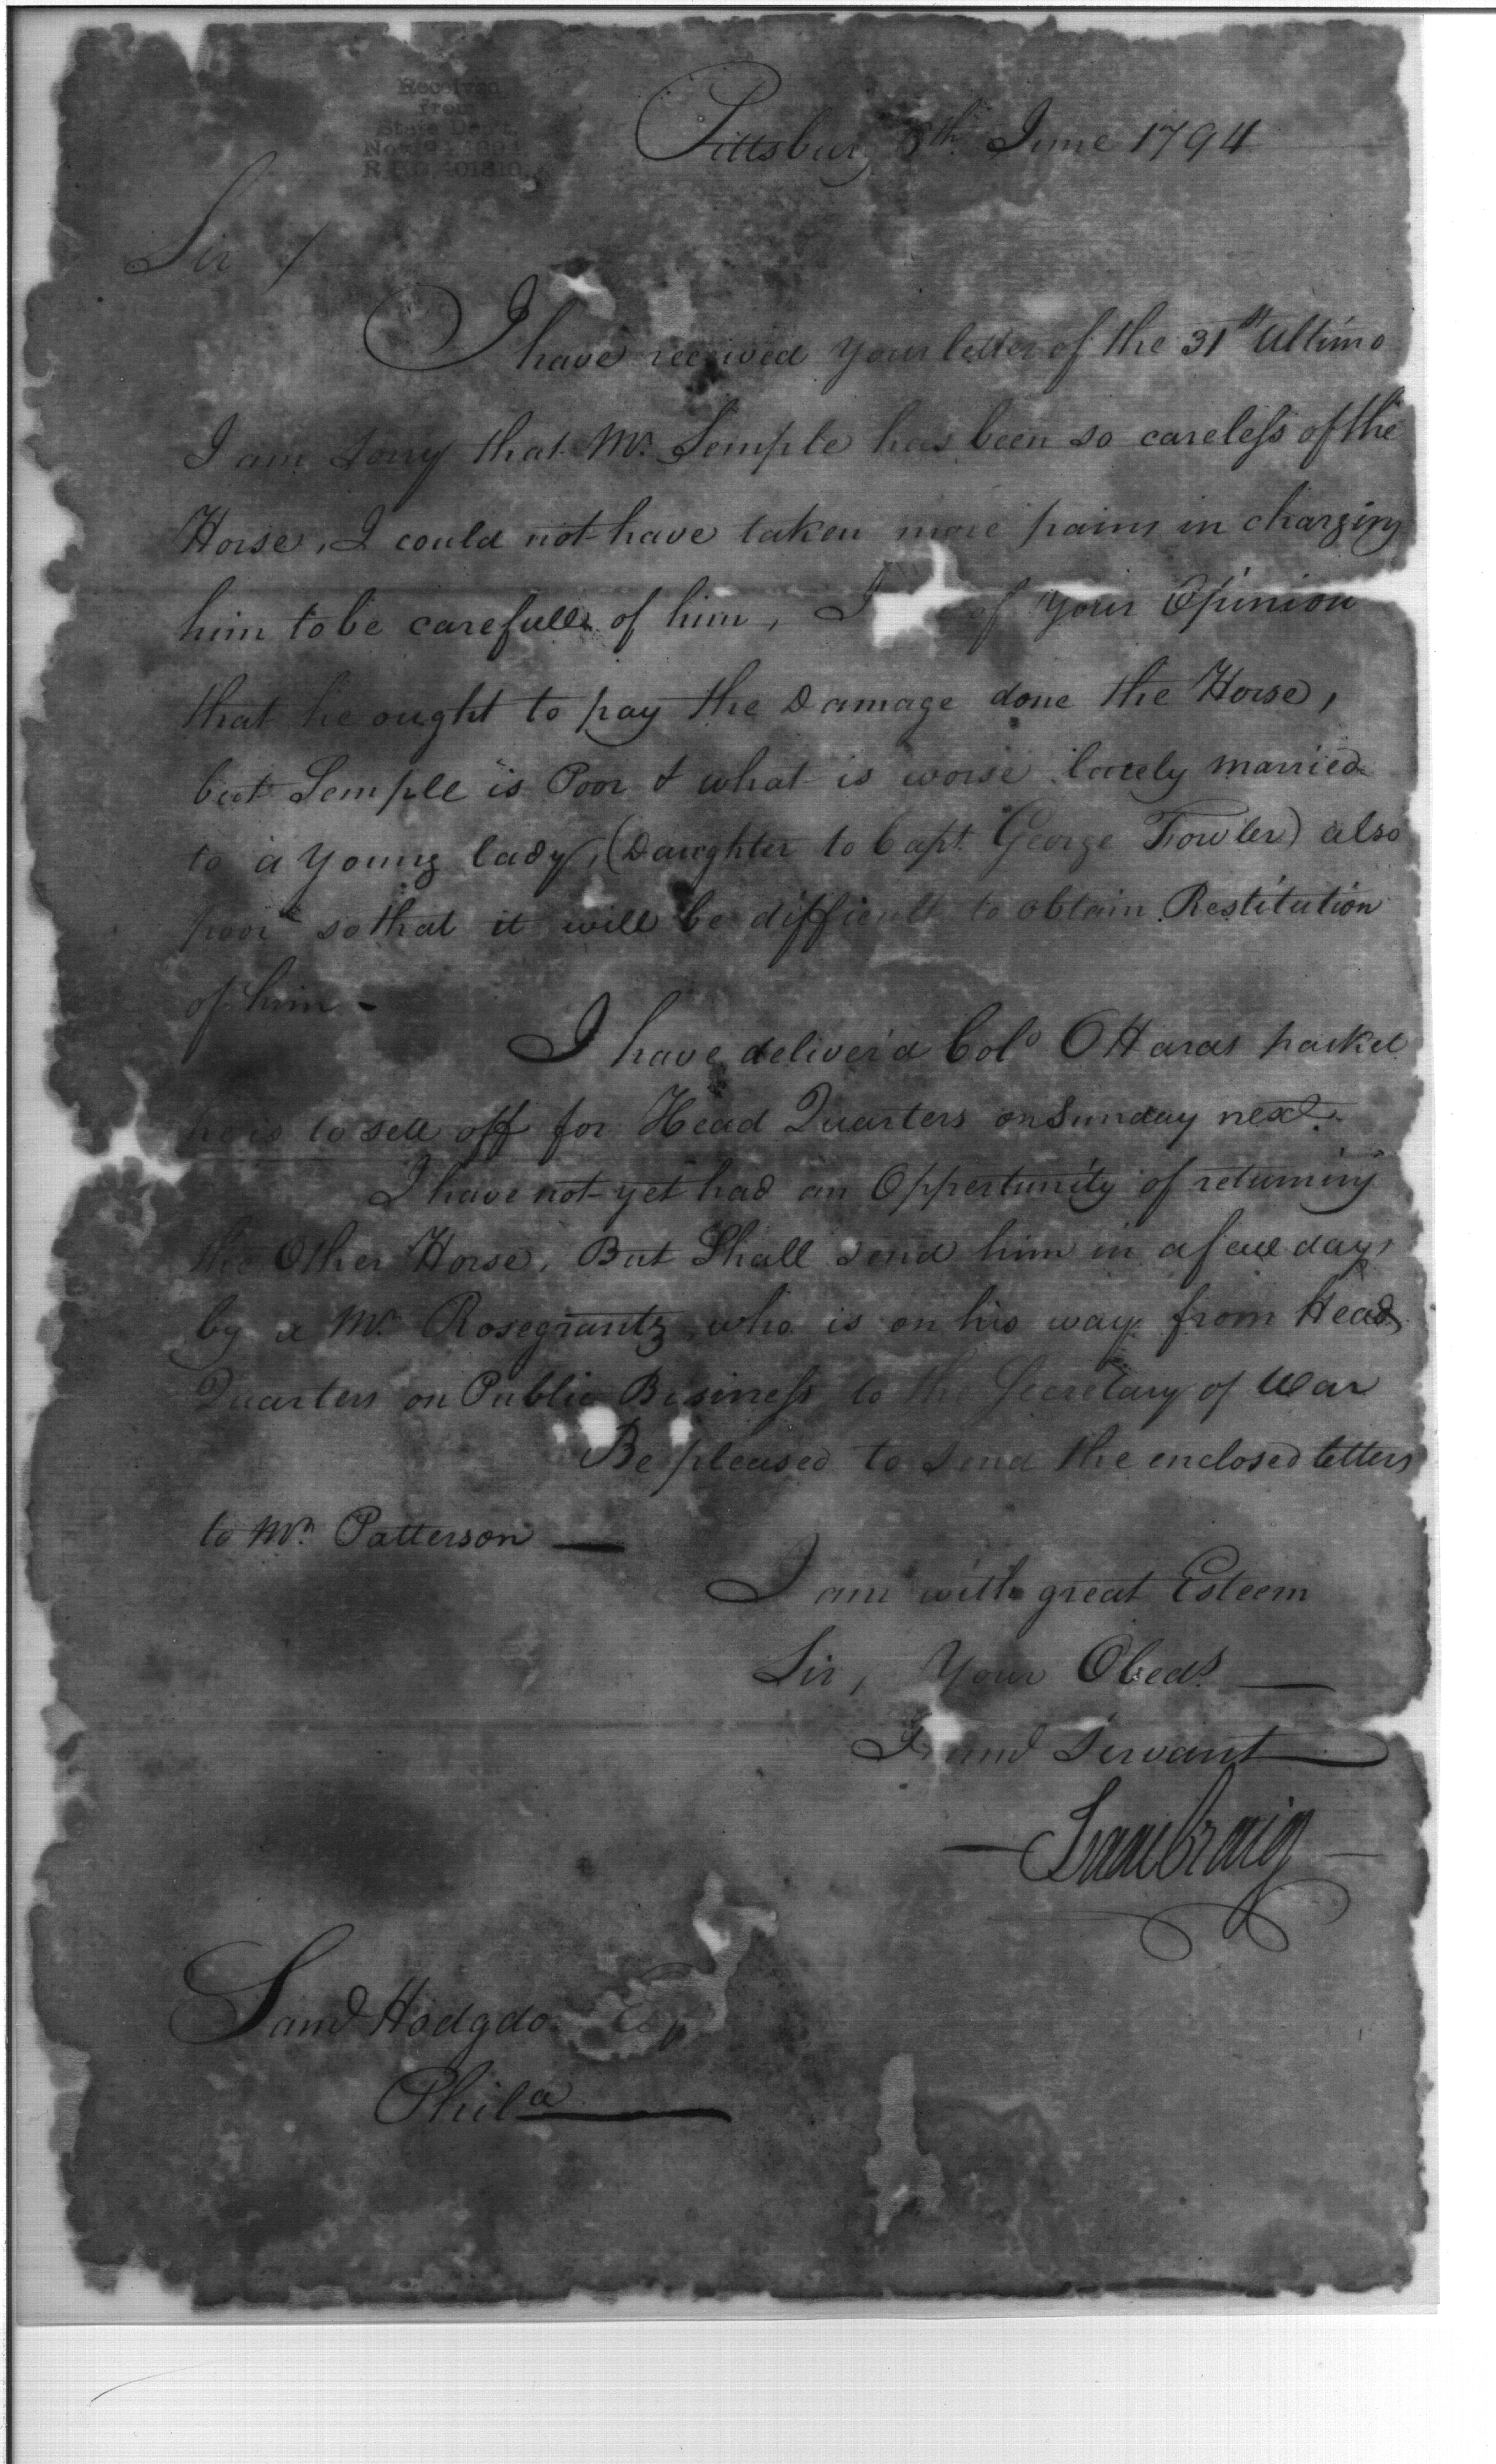 Received
from
State Dep't.
Pittsburg 8th June 1794
Sir /
I have received your letter of the 31st Ultimo
I am sorry that Mr. Semple has been so careless of the
Horse, I could not have taken more pains in charging
him to be carefull of him, I of your Opinion
that he ought to pay the Damage done the Horse,
but Semple is Poor & what is worse lately married
to a young lady, (Daughter to Capt George Fowler) also
poor so that it will be difficult to obtain Restitution
of him -
I have deliver'd Colo OHaras packet
he is to sett off for Head Quarters on Sunday next.
I have not yet had an Oppertunity of returning
the Other Horse, But Shall send him in a few days
by a Mr. Rosegrantz who is on his way from Head
Quarters on Public Business to the Secretary of War
Be pleased to send the enclosed letters
to Mr. Patterson —
I am with great Esteem
Sir, Your Obedt. —
Servant
— Isaac Craig —
Saml Hodgdo Esq
Phila